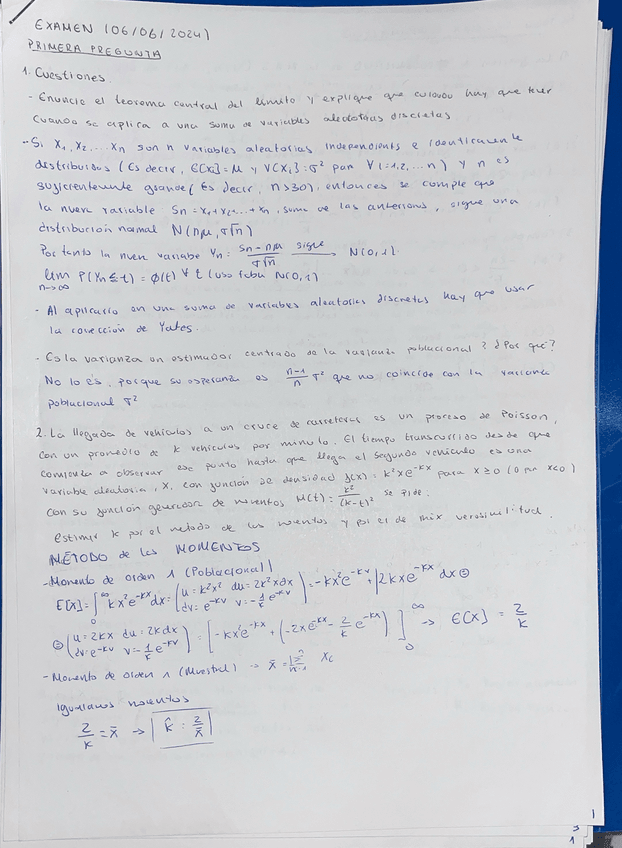 EXAMEN (06/06/2024)
PRIMERA PREGUNTA
1. Cuestiones.
- Enuncie el teorema central del límite y explique que cuidado hay que tener
cuando se aplica a una suma de variables aleatorias discretas
- Si X1, X2, ... Xn son n variables aleatorias independientes e identicamente
distribuidas (Es decir, E[Xi]=μ y V(Xi)=σ² para ∀ i=1,2,...n) y n es
suficientemente grande (Es decir, n>30), entonces se cumple que
la nueva variable Sn = X1+X2+...+Xn, suma de las anteriores, sigue una
distribución normal N(nμ, σ√n)
Por tanto la nueva variable Yn = (Sn-nμ)/(σ√n) sigue → N(0,1).
lim n→∞ P(Yn ≤ t) = Φ(t) ∀ t (uso tabla N(0,1))
- Al aplicarlo en una suma de variables aleatorias discretas hay que usar
la corrección de Yates.
- Es la varianza un estimador centrado de la varianza poblacional? ¿Por qué?
No lo es, porque su esperanza es (n-1)/n σ² que no coincide con la varianza
poblacional σ²
2. La llegada de vehículos a un cruce de carreteras es un proceso de Poisson,
con un promedio de k vehículos por minuto. El tiempo transcurrido desde que
comienza a observar ese punto hasta que llega el segundo vehículo es una
variable aleatoria, X, con función de densidad f(x) = k²xe^-kx para x≥0 (0 para x<0)
con su función generadora de momentos M(t) = k²/(k-t)² se pide.
estimar k por el metodo de los momentos y por el de máx verosimilitud.
MÉTODO de los MOMENTOS
- Momento de orden 1 (Poblacional)
E[X] = ∫0^∞ kx²e^-kx dx = (u=k²x² du=2k²xdx dv=e^-kx v=-1/k e^-kx) = -kx²e^-kx + ∫2kxe^-kx dx ⊜
⊜ (u=2kx du=2kdx dv=e^-kx v=-1/k e^-kx) = [-kx²e^-kx + (-2xe^-kx - 2/k e^-kx)]0^∞ → E[X] = 2/k
- Momento de orden 1 (Muestral) → x̄ =
Igualamos momentos
2/k = x̄ → k̂ : 2/x̄
1
3
1